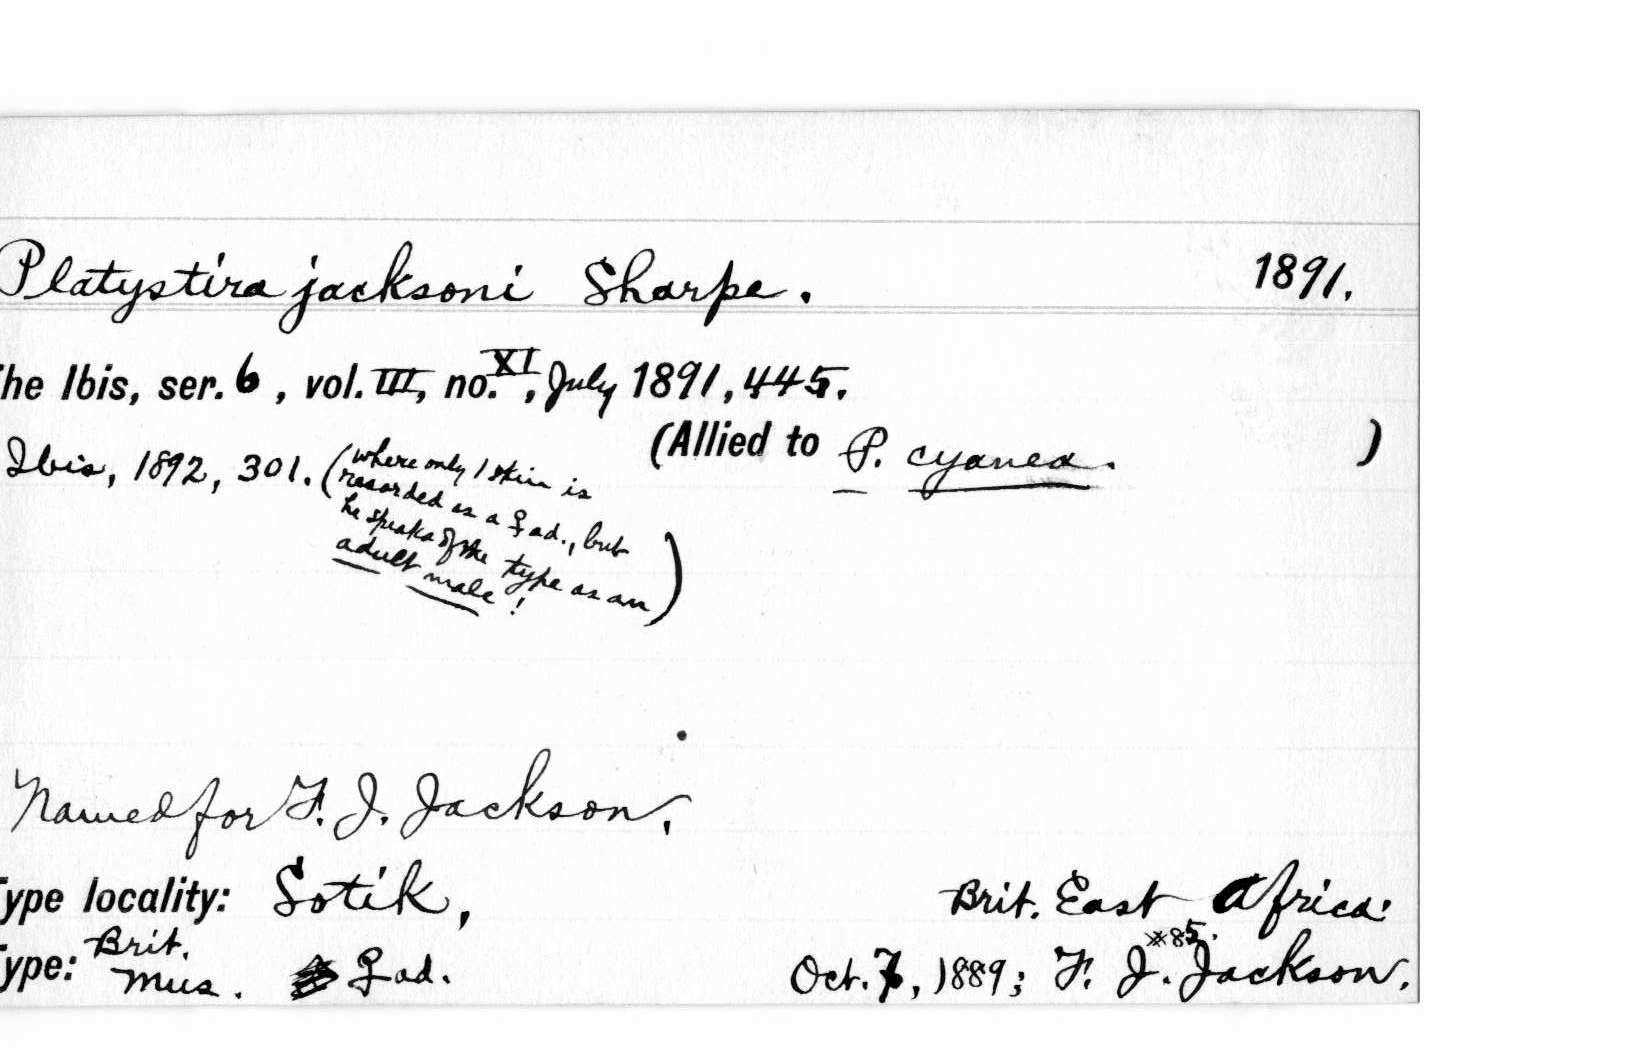 Platystira jacksoni Sharpe. 1891.
The Ibis, ser. 6, vol. III, no. XI, July 1891, 445.
(Allied to P. cyanea. )
Ibis, 1892, 301. (where only 1 skin is
recorded as a ♀ ad., but
he speaks of the type as an
adult male!)
Named for F. J. Jackson.
Type locality: Sotik, Brit. East Africa.
#85.
Type: Brit. Mus. ♀ ad. Oct. 7, 1889; F. J. Jackson.